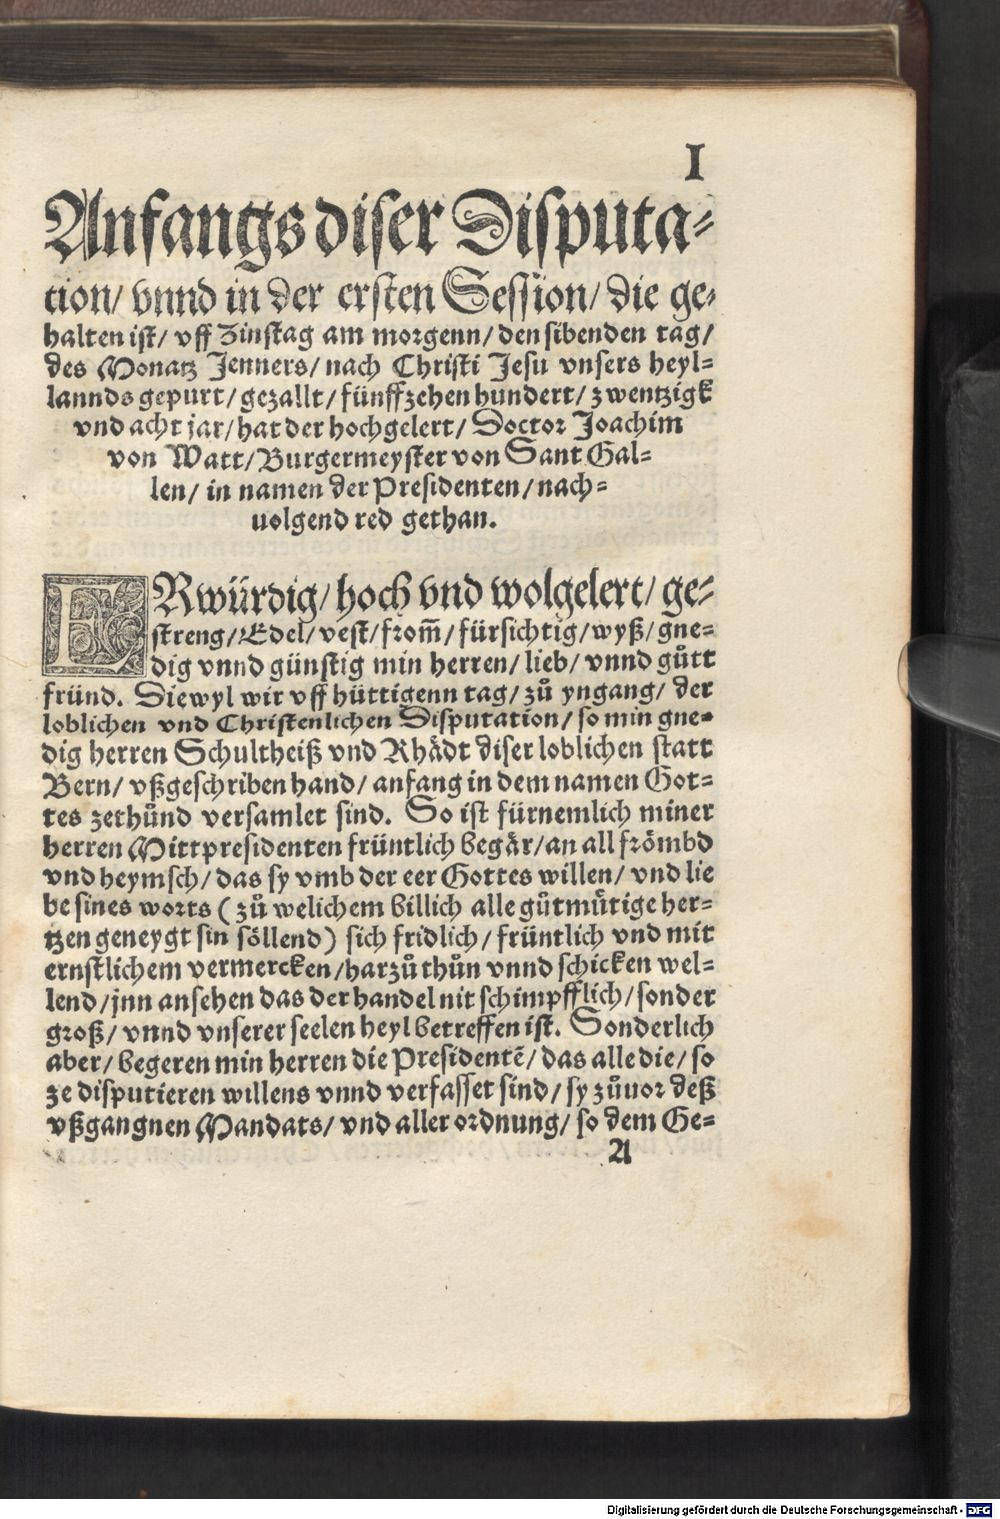 I
Anfangs diser Disputa-
tion/ vnnd in der ersten Session/ die ge-
halten ist/ vff Zinstag am morgenn/ den sibenden tag/
des Monatz Jenners/ nach Christi Jesu vnsers heyl-
lannds gepurt/ gezallt/ fünffzehen hundert/ zwentzigk
vnd acht jar/ hat der hochgelert/ Doctor Joachim
von Watt/ Burgermeyster von Sant Gal-
len/ in namen der Presidenten/ nach-
uolgend red gethan.
ERwürdig/ hoch vnd wolgelert/ ge-
streng/ Edel/ vest/ from̃/ fürsichtig/ wyß/ gne-
dig vnnd günstig min herren/ lieb/ vnnd gůtt
fründ. Diewyl wir vff hüttigenn tag/ zů yngang/ der
loblichen vnd Christenlichen Disputation/ so min gne-
dig herren Schultheiß vnd Rhådt diser loblichen statt
Bern/ vßgeschriben hand/ anfang in dem namen Got-
tes zethůnd versamlet sind. So ist fürnemlich miner
herren Mittpresidenten früntlich begår/ an all frömbd
vnd heymsch/ das sy vmb der eer Gottes willen/ vnd lie
be sines worts ( zů welichem billich alle gůtmůtige her-
tzen geneygt sin söllend ) sich fridlich/ früntlich vnd mit
ernstlichem vermercken/ harzů thůn vnnd schicken wel-
lend/ jnn ansehen das der handel nit schimpfflich/ sonder
groß/ vnnd vnserer seelen heyl betreffen ist. Sonderlich
aber/ begeren min herren die Presidentẽ/ das alle die/ so
ze disputieren willens vnnd verfasset sind/ sy zůuor deß
vßgangnen Mandats/ vnd aller ordnung/ so dem Ge-
A
Digitalisierung gefördert durch die Deutsche Forschungsgemeinschaft - DFG